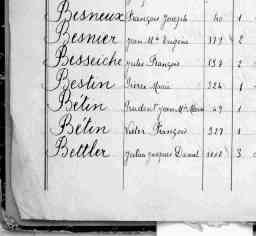 Besneux François Joseph 40 1
Besnier Jean Mie Eugène 379 2
Besseiche Jules François 154 2
Bestin Pierre Marie 324 1
Bétin Prudent Jean Mie Marie 49 1
Bétin Victor François 327 1
Bettler Julien Jacques Daniel 3